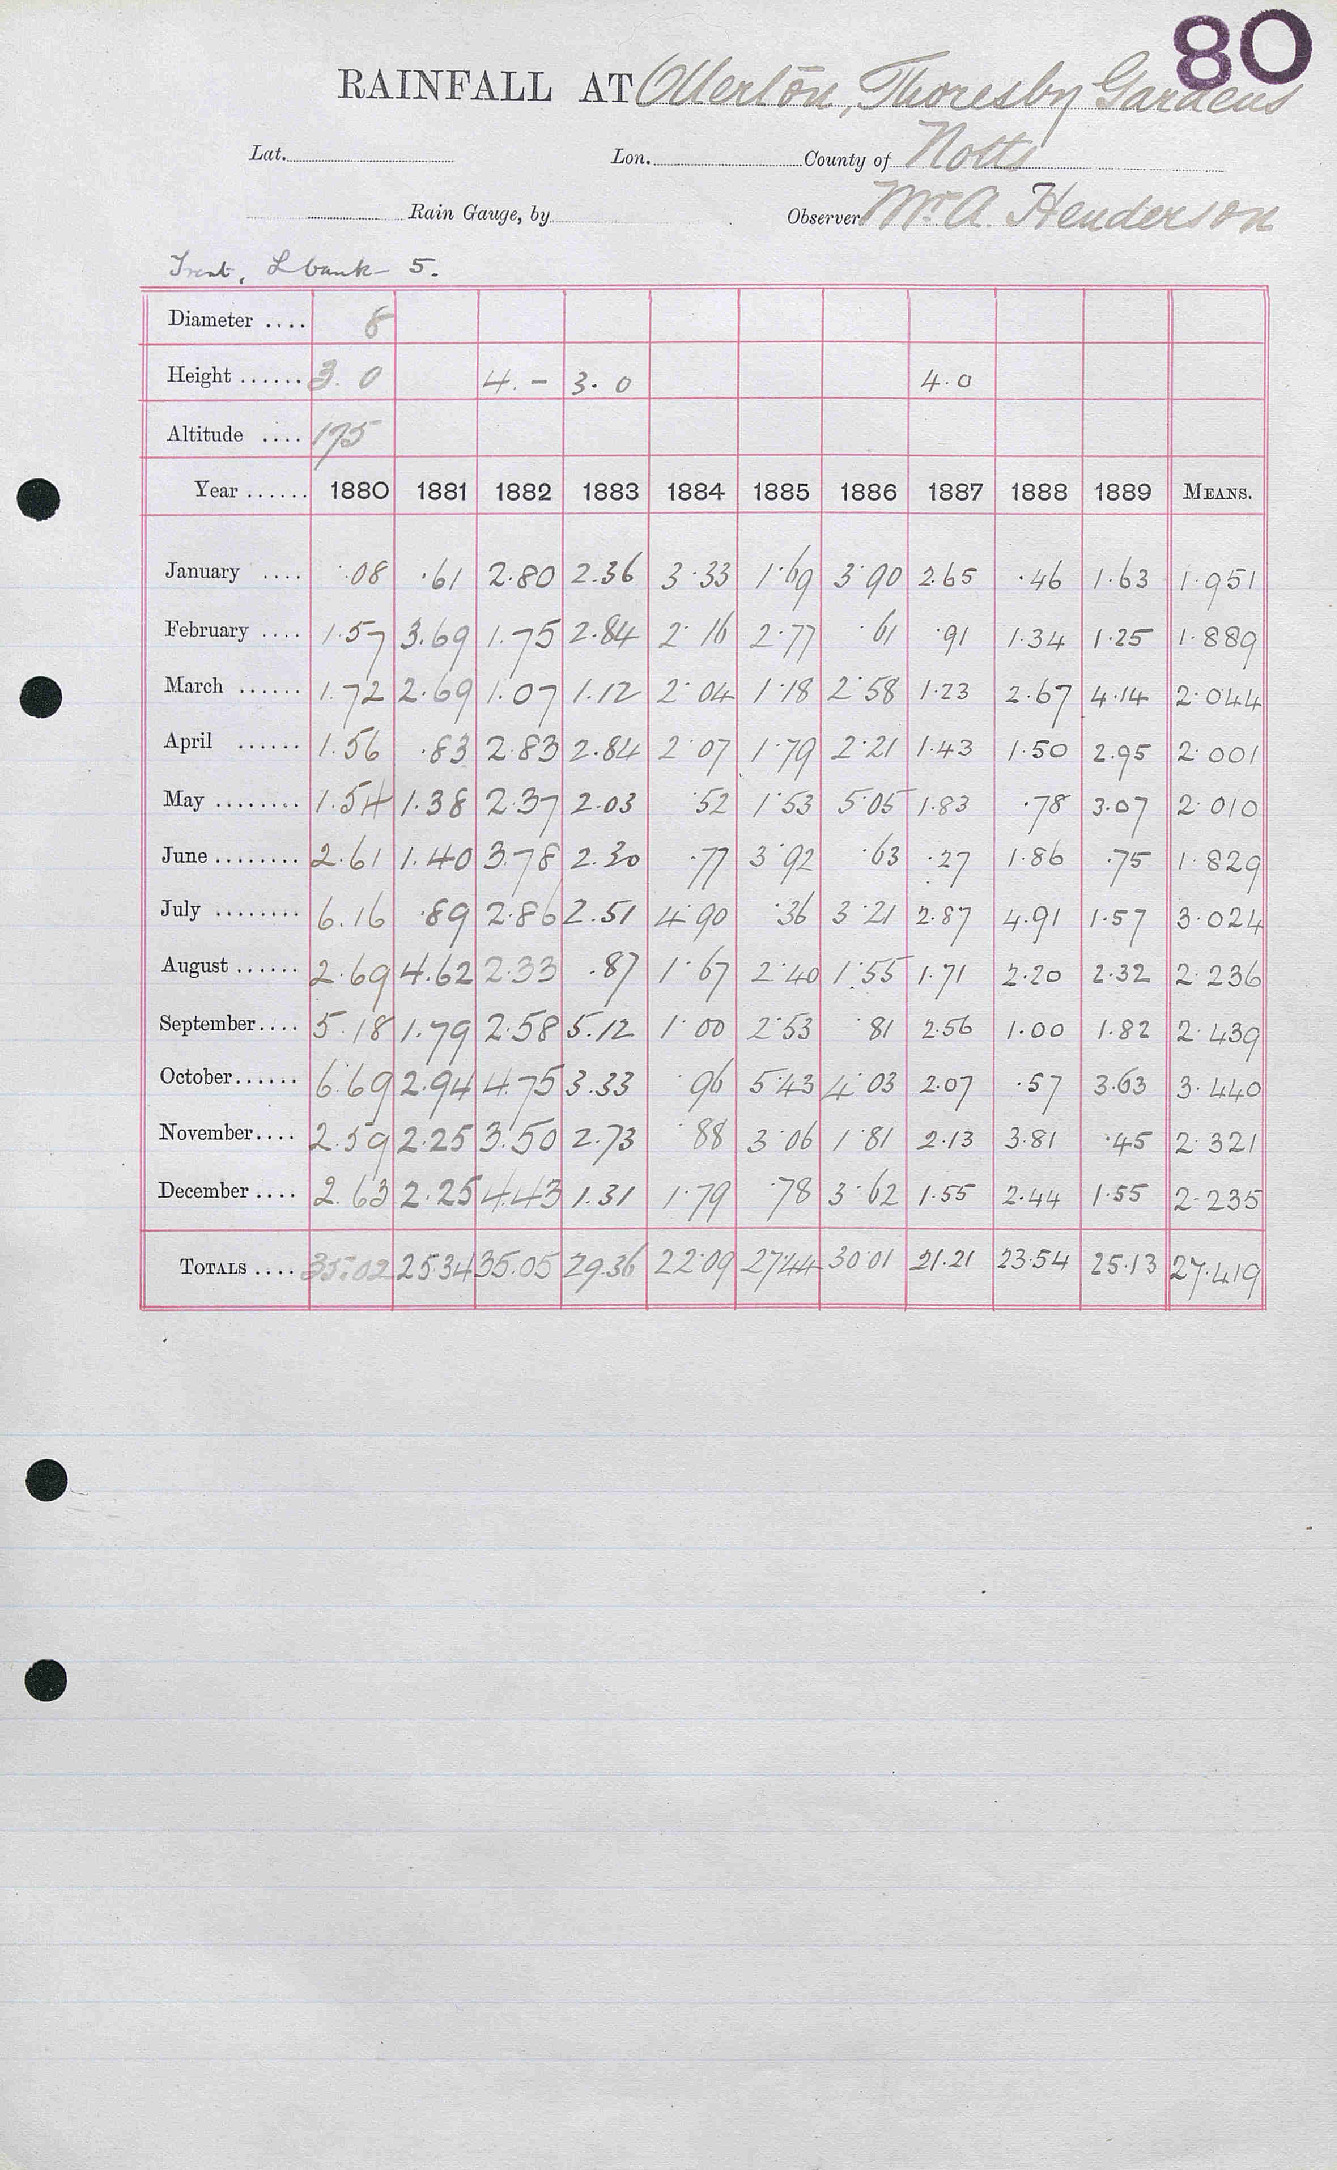 80
RAINFALL AT Ollerton, Thoresby Gardens
Lat. Lon. County of Notts
Rain Gauge, by Observer Mr. A. Henderson
Trent, L bank 5.
Diameter .... 8
Height ...... 3.0 4.- 3.0 4.0
Altitude .... 175
Year ...... 1880 1881 1882 1883 1884 1885 1886 1887 1888 1889 MEANS.
January .... .08 .61 2.80 2.36 3.33 1.69 3.90 2.65 .46 1.63 1.951
February .... 1.57 3.69 1.75 2.84 2.16 2.77 .61 .91 1.34 1.25 1.889
March ...... 1.72 2.69 1.07 1.12 2.04 1.18 2.58 1.23 2.67 4.14 2.044
April ...... 1.56 .83 2.83 2.84 2.07 1.79 2.21 1.43 1.50 2.95 2.001
May ........ 1.54 1.38 2.37 2.03 .52 1.53 5.05 1.83 .78 3.07 2.010
June ........ 2.61 1.40 3.78 2.30 .77 3.92 .63 .27 1.86 .75 1.829
July ........ 6.16 .89 2.86 2.51 4.90 .36 3.21 2.87 4.91 1.57 3.024
August ...... 2.69 4.62 2.33 .87 1.67 2.40 1.55 1.71 2.20 2.32 2.236
September.... 5.18 1.79 2.58 5.12 1.00 2.53 .81 2.56 1.00 1.82 2.439
October...... 6.69 2.94 4.75 3.33 .96 5.43 4.03 2.07 .57 3.63 3.440
November.... 2.59 2.25 3.50 2.73 .88 3.06 1.81 2.13 3.81 .45 2.321
December .... 2.63 2.25 4.43 1.31 1.79 .78 3.62 1.55 2.44 1.55 2.235
TOTALS .... 35.02 25.34 35.05 29.36 22.09 27.44 30.01 21.21 23.54 25.13 27.419